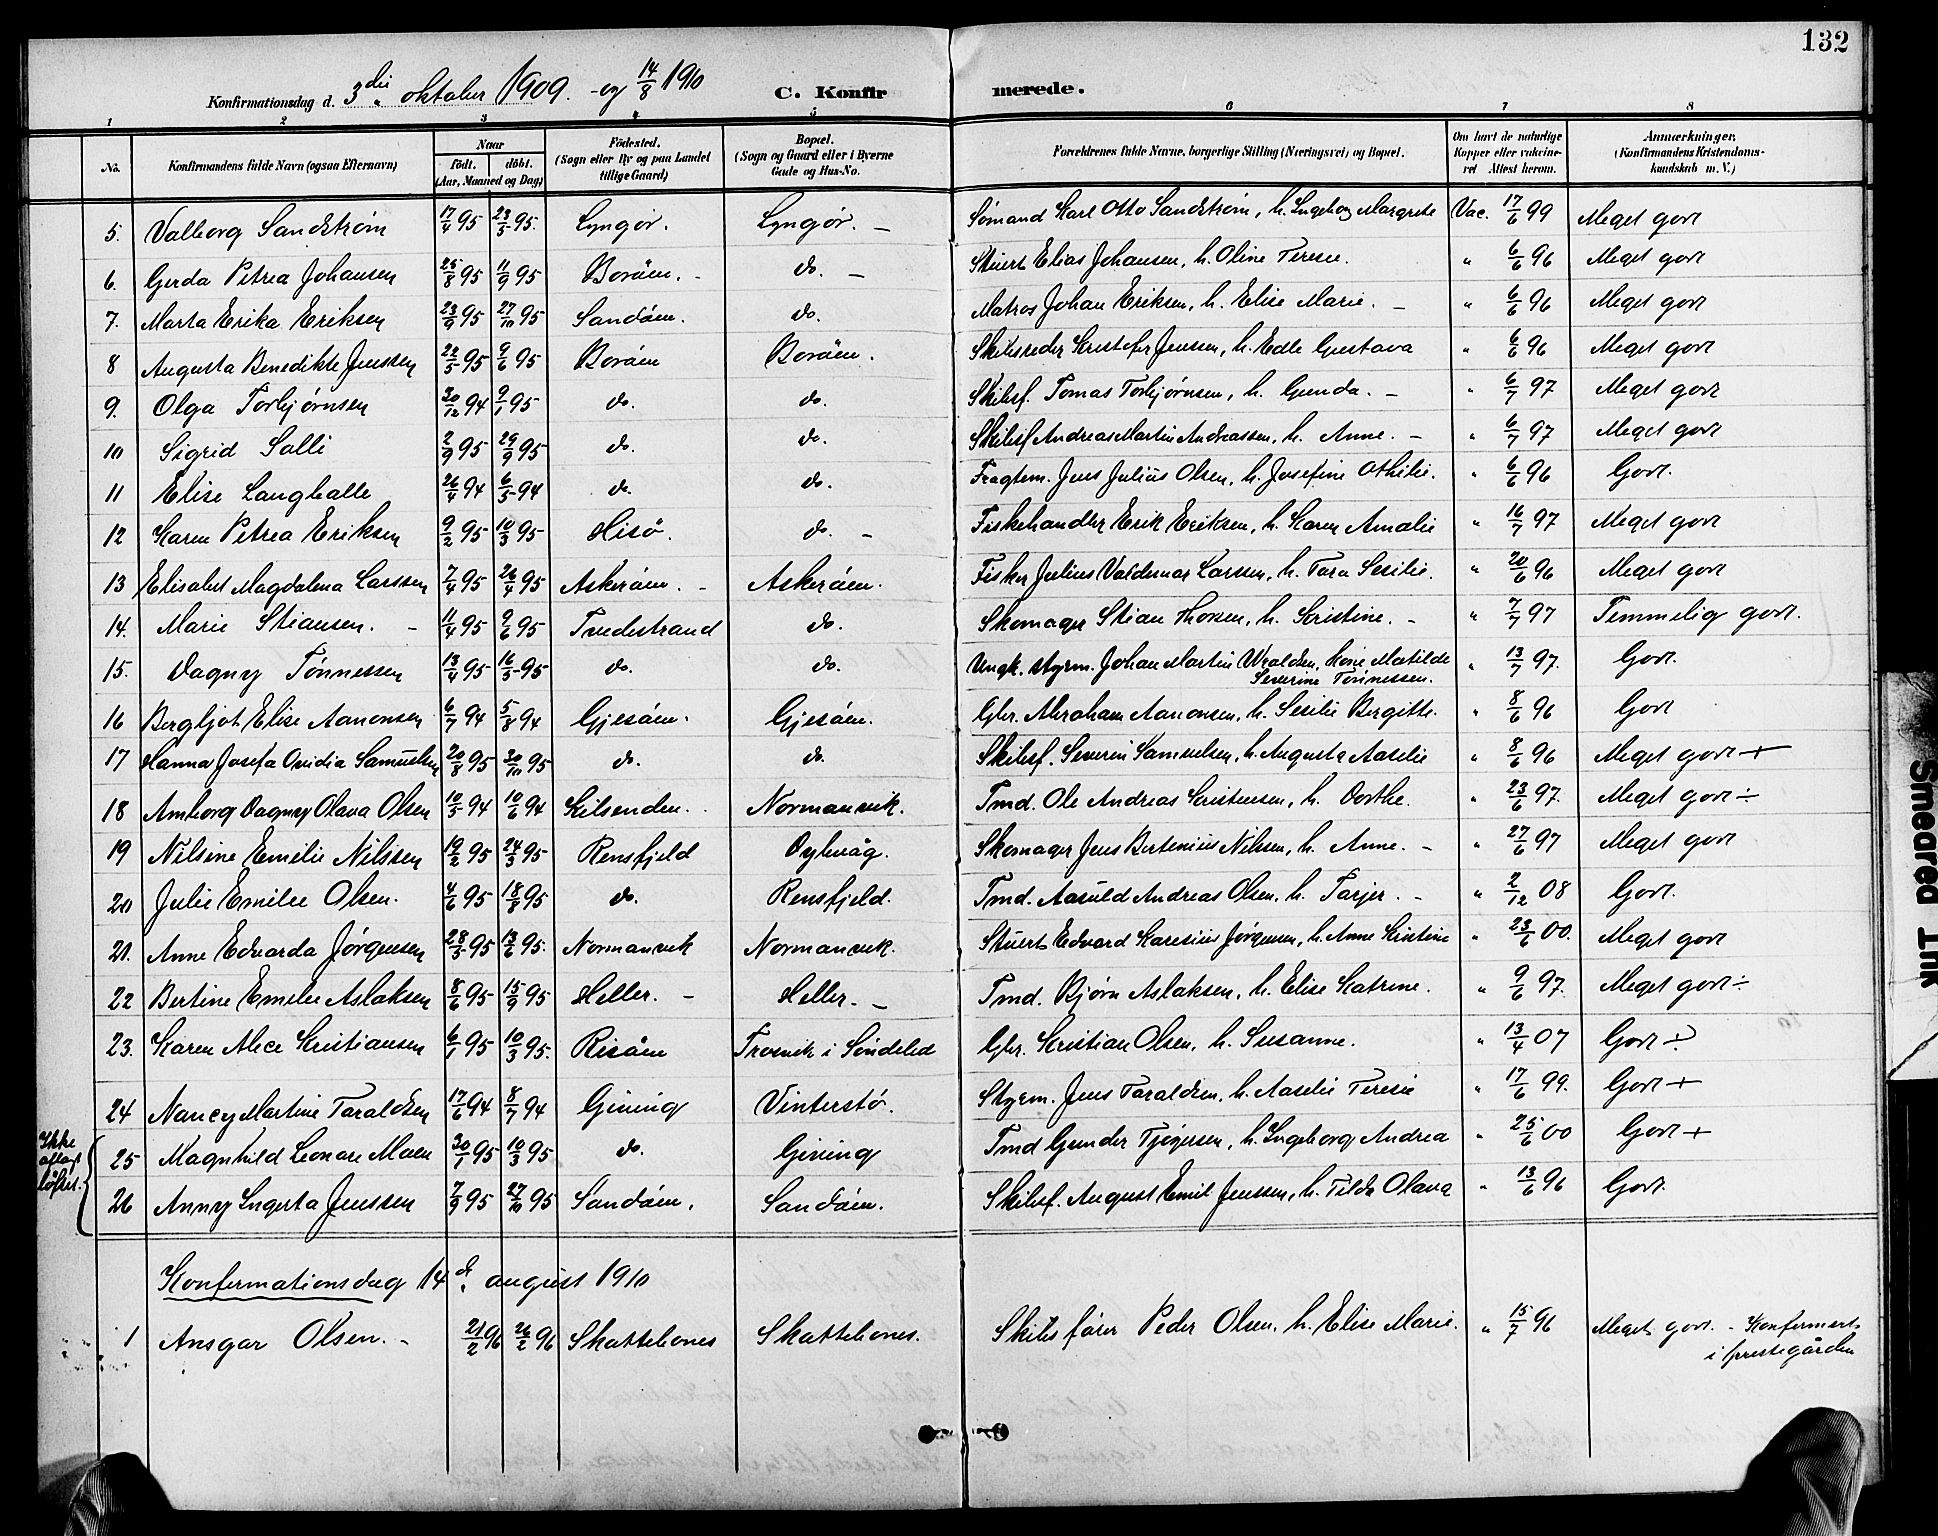 132
Konfirmationsdag d. 3die oktober 1909. - og 14/8 1910 C. Konfirmerede.
1 2 3 4 5 6 7 8
No. Konfirmandens fulde Navn (ogsaa Efternavn) Naar födt. döbt. (Aar, Maaned og Dag) Födested. (Sogn eller By og paa Landet tillige Gaard) Bopæl. (Sogn og Gaard eller i Byerne Gade og Hus-No. Forældrenes fulde Navne, borgerlige Stilling (Næringsvei) og Bopæl. Om havt de naturlige Kopper eller vakcineret Attest herom. Anmærkninger. (Konfirmandens Kristendomskundskab m. V.)
5. Valborg Sandstrøm 17/4 95 23/5 95. Lyngör. Lyngör. - Sömand Karl Otto Sandström, h. Ingeborg Margrete Vac. 17/6 99 Meget godt
6. Gerda Petrea Johansen 25/8 95 11/9 95 Boröen. - do. - Stuert Elias Johansen, h. Oline Terese. " 6/6 96 Meget godt
7. Marta Erika Eriksen 23/9 95 27/10 95 Sandöen. do. Matros Johan Eriksen, h. Elise Marie. - " 6/6 96 Meget godt
8 Augusta Benedikte Jenssen 22/5 95 9/6 95 Boröen Boröen. Skibsreder Kristofer Jenssen, h. Edle Gustava " 6/6 96 Meget godt
9. Olga Torbjørnsen 30/12 94 9/1 95 do. do. Skibsf. Tomas Torbjørnsen, h. Gunda. - " 6/7 97 Meget godt
10 Sigrid Salli 2/9 95 29/9 95 do. do. Skibsf Andreas Martin Andreassen, h. Anne. - " 6/7 97 Meget godt
11 Elise Langballe 26/4 94 6/5 94 do. do. Fragtem. Jens Julius Olsen, h. Josefine Othilie. " 6/6 96 Godt.
12 Karen Petrea Eriksen 9/2 95 10/3 95 Hisö. do. - Fiskehandler Erik Eriksen, h. Karen Amalie " 16/7 97 Meget godt
13 Elisabet Magdalena Larssen 7/4 95 26/4 95 Askeröen. - Askeröen. Fisker Julius Valdemar Larssen, h. Tara Sesilie. " 20/6 96 Meget godt
14. Marie Stiansen. - 11/4 95 9/6 95 Tvedestrand do. Skomager Stian Thorsen, h. Kristine. - " 7/7 97 Temmelig godt.
15. Dagny Tönnessen 13/4 95 16/5 95 do. do. Ungk. styrm. Johan Martin Wraldsen, kone Matilde Severine Tönnessen. " 13/7 97. Godt.
16 Bergljot Elise Aanonsen 6/7 94 5/8 94 Gjesöen. Gjesöen. Gbr. Abraham Aanonsen, h. Sesilie Bergitte. " 8/6 96 Godt
17 Hanna Josefa Ovidia Samuelsen 20/8 95 20/10 95 do. do. Skibsf. Severin Samuelsen, h. Augusta Aaselie " 8/6 96 Meget godt +
18 Amborg Dagny Olava Olsen 10/5 94 10/6 94 Kilsenden. Normanvik. Tmd. Ole Andreas Kristensen, h. Dorthe. " 23/6 97. Meget godt ÷
19 Nilsine Emilie Nilssen 19/2 95 24/3 95 Rensfjeld Dybvåg. Skomager Jens Bertenius Nilsen, h. Anne. - " 27/6 97 Meget godt
20 Julie Emilie Olsen. 4/6 95 18/8 95 do. Rensfjeld. Tmd. Aasuld Andreas Olsen, h. Tarjer. - " 2/12 08 Godt.
21. Anne Edvarda Jörgensen 28/5 95 13/6 95. Normanvik Normanvik. Stuert Edvard Karesius Jørgensen, h. Anne Kristine " 23/6 00. Meget godt
22 Bertine Emelie Aslaksen 8/6 95 15/9 95 Heller. - Heller. - Tmd. Bjørn Aslaksen, h. Elise Katrine. " 9/6 97. Meget godt ÷
23. Karen Alice Kristiansen 6/1 95 10/3 95. Risöen Trosvik i Söndeled Gbr. Kristian Olsen, h. Susanne. " 13/4 07 Godt ÷
24 Nancy Martine Taraldsen 17/6 94 8/7 94 Giving Vinterstö. Styrm. Jens Taraldsen, h. Aaselie Teresie " 17/6 99. Godt +
Ikke aflagt löftet.
25 Magnhild Leonare Moen 30/1 95 10/3 95 do. Giving Tmd Gunder Tjøgersen, h. Ingeborg Andrea " 25/6 00 Godt +
26 Anny Ingerta Jenssen 7/9 95 27/10 95 Sandöen. Sandöen. Skibsf. August Emil Jenssen, h. Tilda Olava " 13/6 96 Godt.
Konfirmationsdag 14d. august 1910
1 Ansgar Olsen. - 21/2 96 26/2 96 Skattebones Skattebones. Skibsfører Peder Olsen, h. Elise Marie. " 15/7 96 Meget godt. - Konfirmert
i prestegården
Smeared Ink